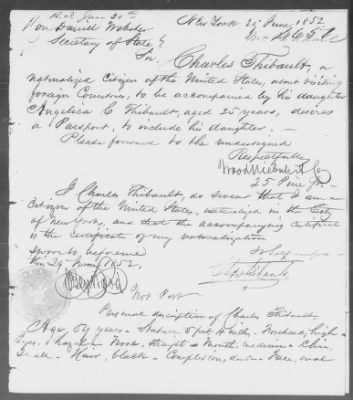 New York 29 June, 1852
Hon Daniel Webster
Secretary of State
Sir,
Charles Thibault, a
naturalized Citizen of the United States, about visiting
foreign Countries, to be accompanied by his daughter
Angelica C Thibault, aged 25 years, desires
a Passport, to include his daughter;
Please forward to the undersigned
Respectfully
25 Pine
I Charles Thibault, do swear that I am a
Citizen of the United States, naturalized in the City
of New York, and that the accompanying Certificate
is the Certificate of my naturalization
Sworn to before me
the 29 June 1852.
Not Pub
Personal description of Charles Thibault
Age, 59 years - Stature 5 feet - Forehead, high -
Eyes, hazel - Nose, straight - Mouth, medium - Chin,
Hair, black - Complexion, dark - Face, oval